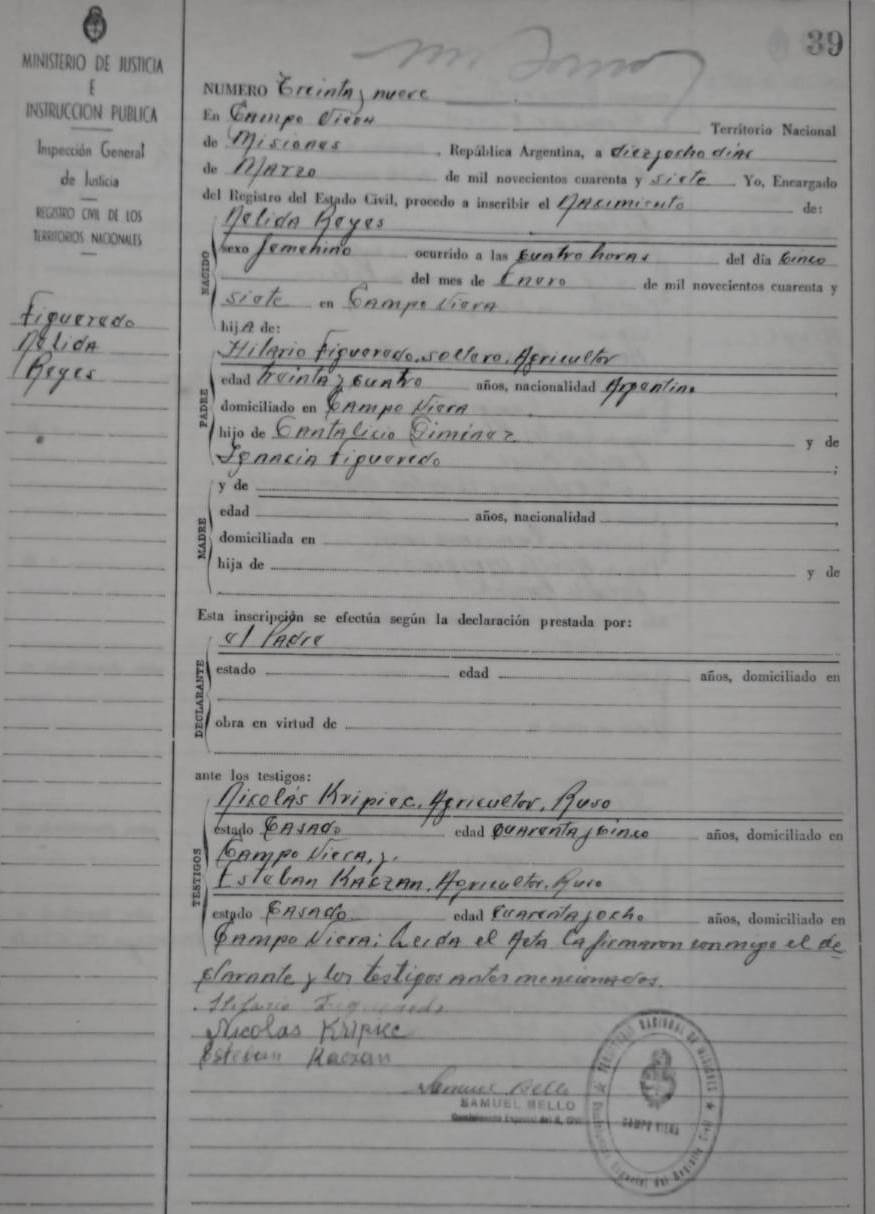 39
MINISTERIO DE JUSTICIA
E
INSTRUCCION PUBLICA
Inspección General
de Justicia
REGISTRO CIVIL DE LOS
TERRITORIOS NACIONALES
Figueredo
Nélida
Reyes
NUMERO Treinta y nueve
En Campo Viera Territorio Nacional
de Misiones, República Argentina, a diez y ocho dias
de Marzo de mil novecientos cuarenta y siete Yo, Encargado
del Registro del Estado Civil, procedo a inscribir el Nacimiento de:
NACIDO
Nélida Reyes
sexo femenino ocurrido a las cuatro horas del día cinco
del mes de Enero de mil novecientos cuarenta y
siete en Campo Viera
hija de:
PADRE
Hilario Figueredo, soltero, Agricultor
edad treinta y cuatro años, nacionalidad Argentino
domiciliado en Campo Viera
hijo de Cantalicio Giminez y de
Ignacia Figueredo ;
MADRE
y de
edad años, nacionalidad ,
domiciliada en
hija de y de
Esta inscripción se efectúa según la declaración prestada por:
el Padre
DECLARANTE
estado edad años, domiciliado en
obra en virtud de
ante los testigos:
TESTIGOS
Nicolás Kripiec, Agricultor, Ruso
estado Casado edad cuarenta y cinco años, domiciliado en
Campo Viera, y.
Esteban Kaczan, Agricultor, Ruso
estado Casado edad cuarenta y ocho años, domiciliado en
Campo Viera; Leida el Acta la firmaron conmigo el de
clarante y los testigos antes mencionados.
Nicolas Kripiec
Esteban Kaczan
Samuel Bello
SAMUEL BELLO
CAMPO VIERA